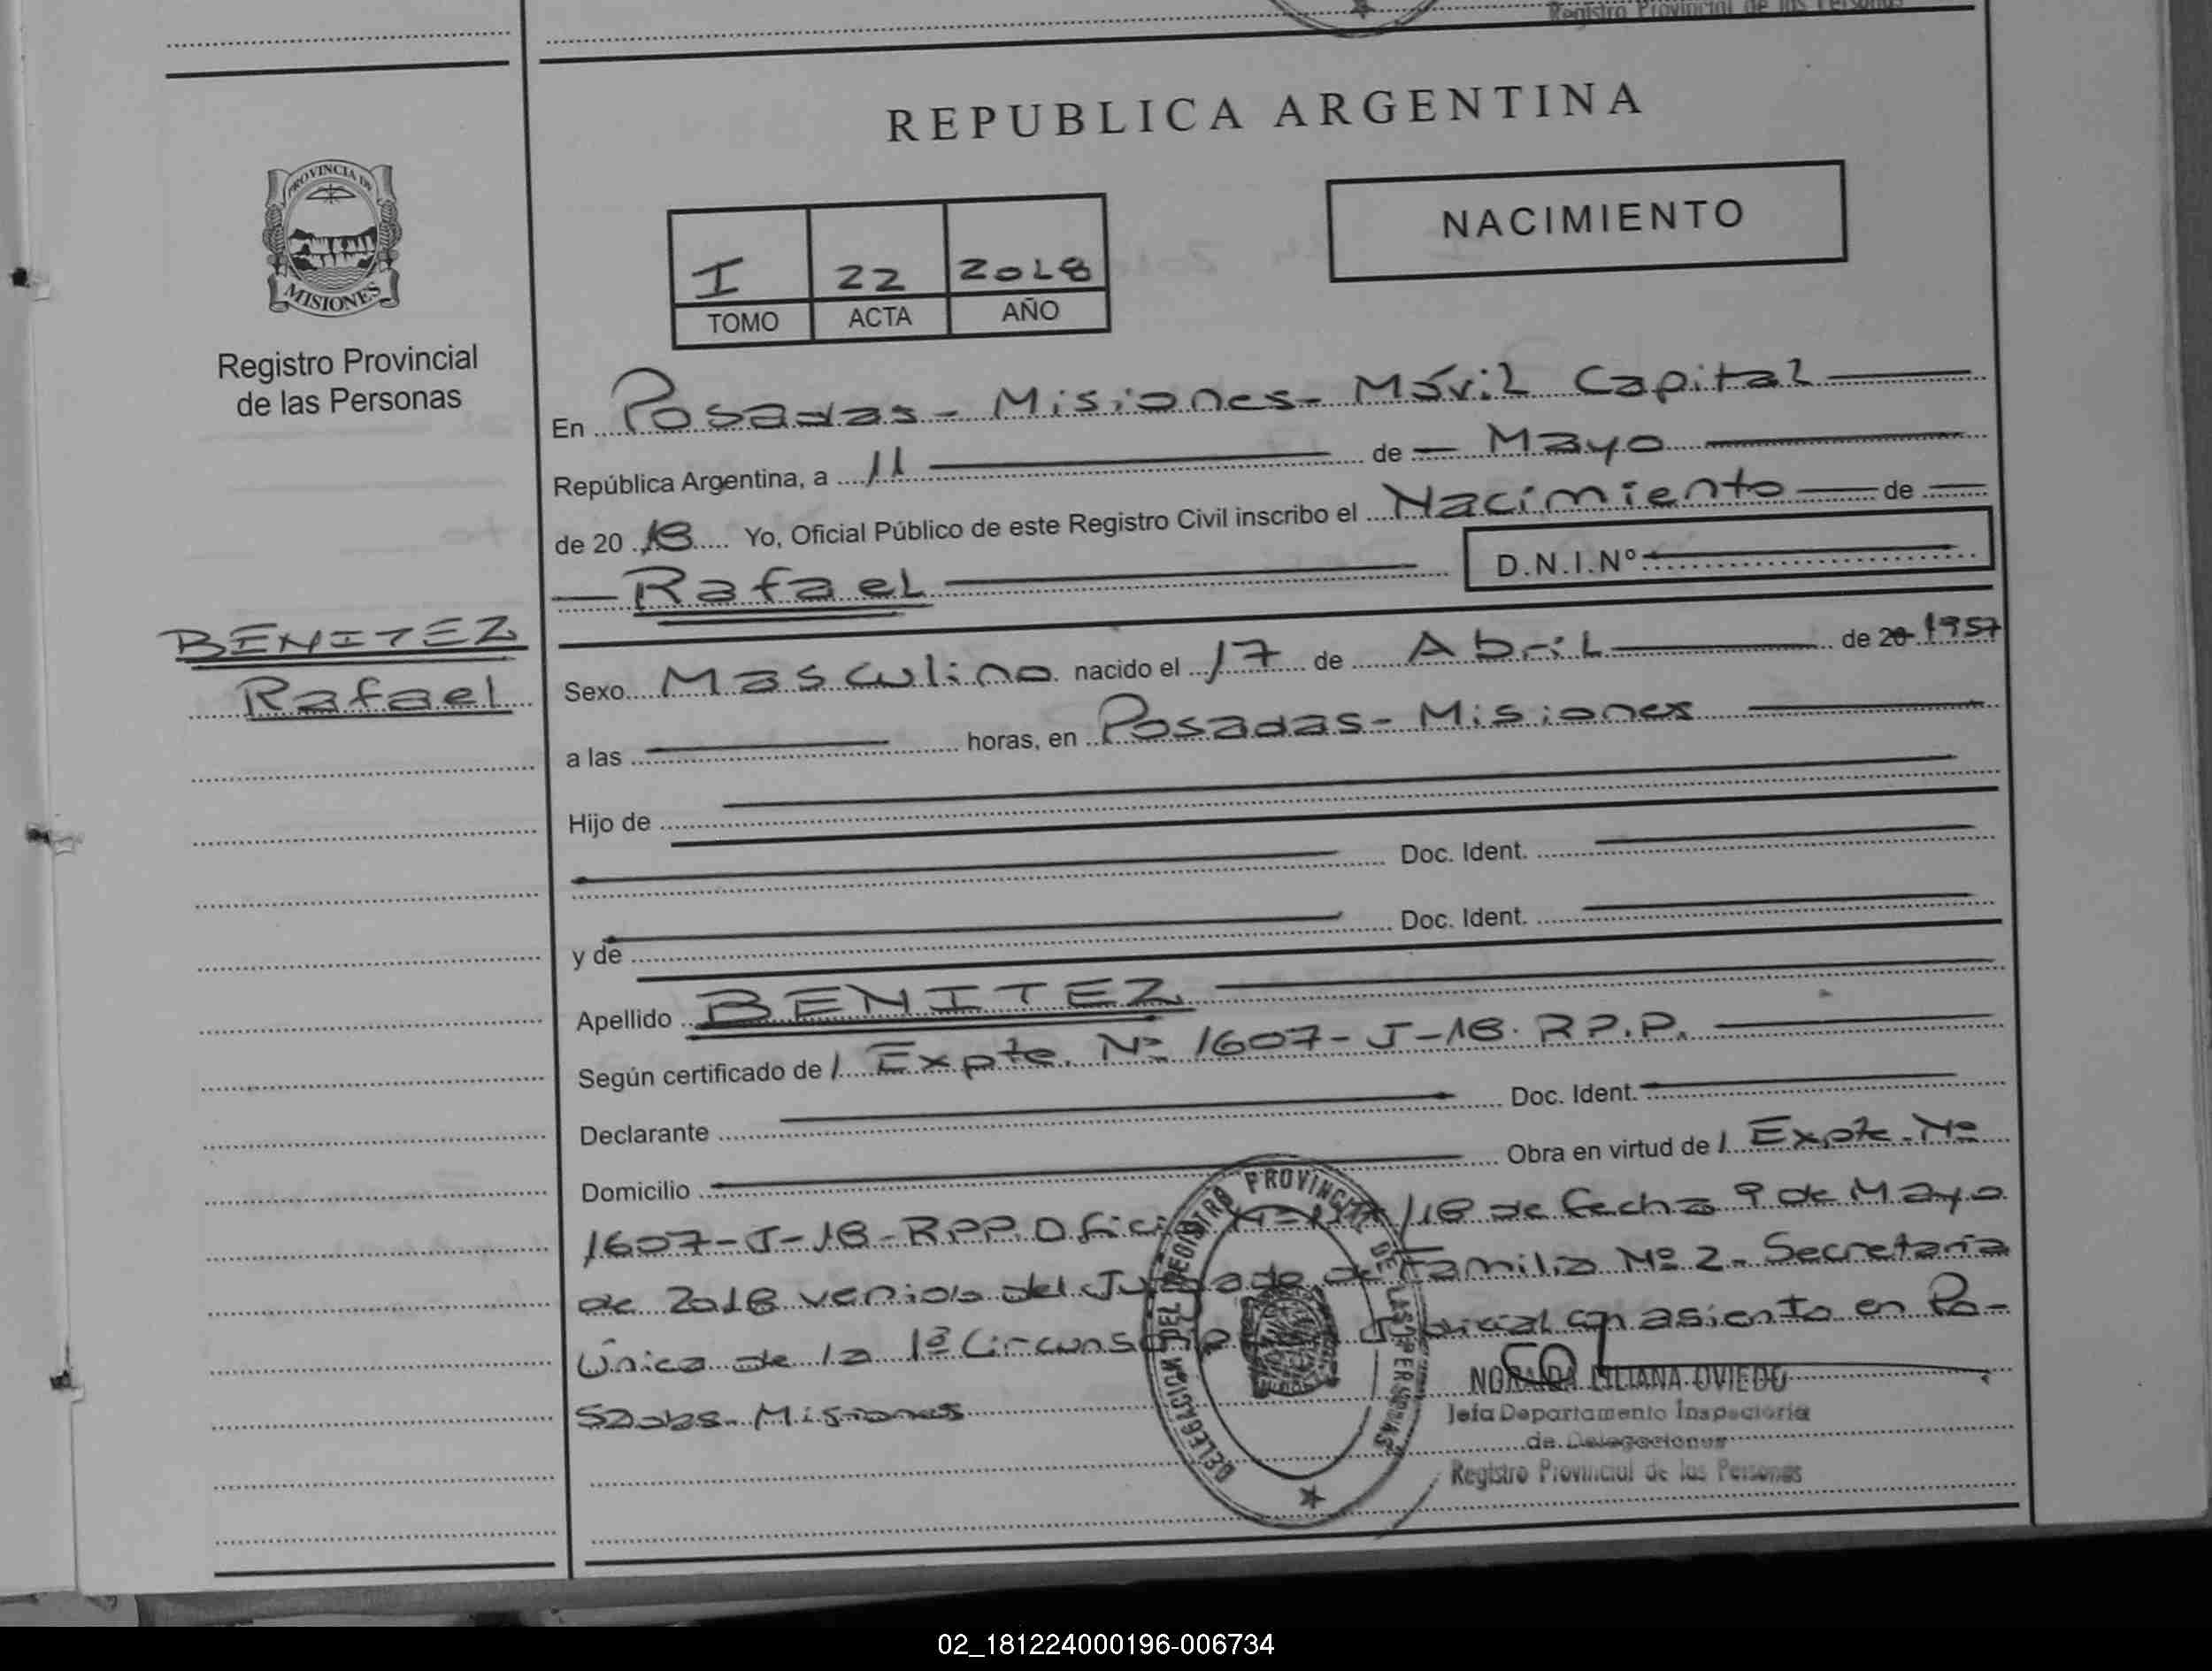 Registro Provincial de las Personas
REPUBLICA ARGENTINA
PROVINCIA DE
MISIONES
Registro Provincial
de las Personas
NACIMIENTO
I 22 2018
TOMO ACTA AÑO
En Posadas - Misiones - Móvil Capital
República Argentina, a 11 de Mayo
de 20 18 Yo, Oficial Público de este Registro Civil inscribo el Nacimiento de
Rafael D.N.I.Nº
BENITEZ
Rafael
Sexo Masculino nacido el 17 de Abril de 20 1957
a las horas, en Posadas - Misiones
Hijo de
Doc. Ident.
y de Doc. Ident.
Apellido BENITEZ
Según certificado de / Expte. Nº 1607-J-18. R.P.P.
Declarante Doc. Ident.
Domicilio Obra en virtud de / Expte. Nº
1607-J-18-RPP. /18 de fecha 9 de Mayo
de 2018 venido del Juzgado de Familia Nº 2 - Secretaría
Única de la 1ª con asiento en Po-
sadas - Misiones
DELEGACION DEL REGISTRO PROVINCIAL DE LAS PERSONAS
LILIANA OVIEDO
Jefa Departamento Inspectoria
de Delegaciones
Registro Provincial de las Personas
02_181224000196-006734